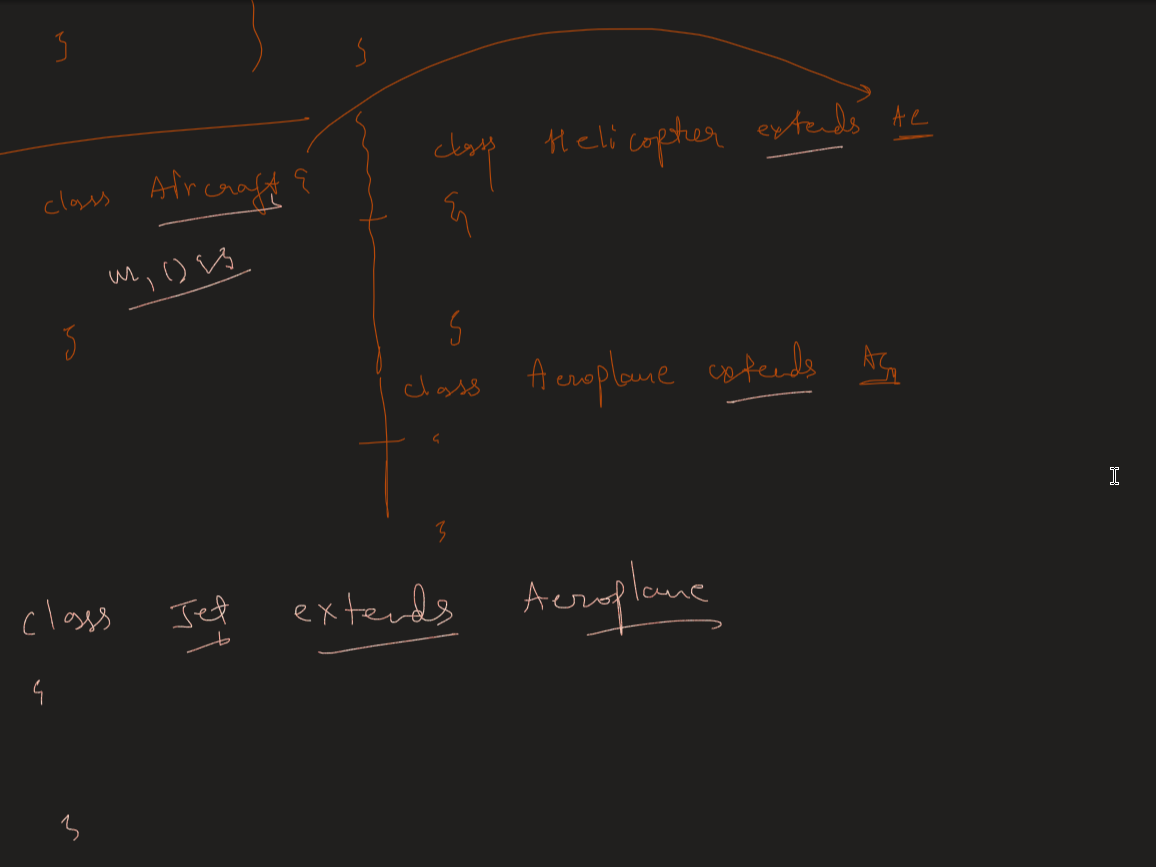 }
}
class Aircraft {
m1() { }
}
class Helicopter extends AC
{
}
class Aeroplane extends AC
{
}
class Jet extends Aeroplane
{
}